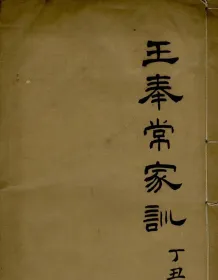 王奉常家訓
丁丑